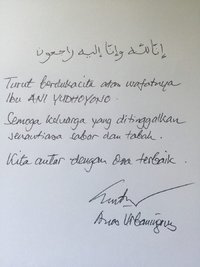 إنا لله وإنا إليه راجعون
Turut berdukacita atas wafatnya
Ibu ANI YUDHOYONO.
Semoga keluarga yang ditinggalkan
senantiasa sabar dan tabah.
Kita antar dengan doa terbaik.
Anas Urbaningrum